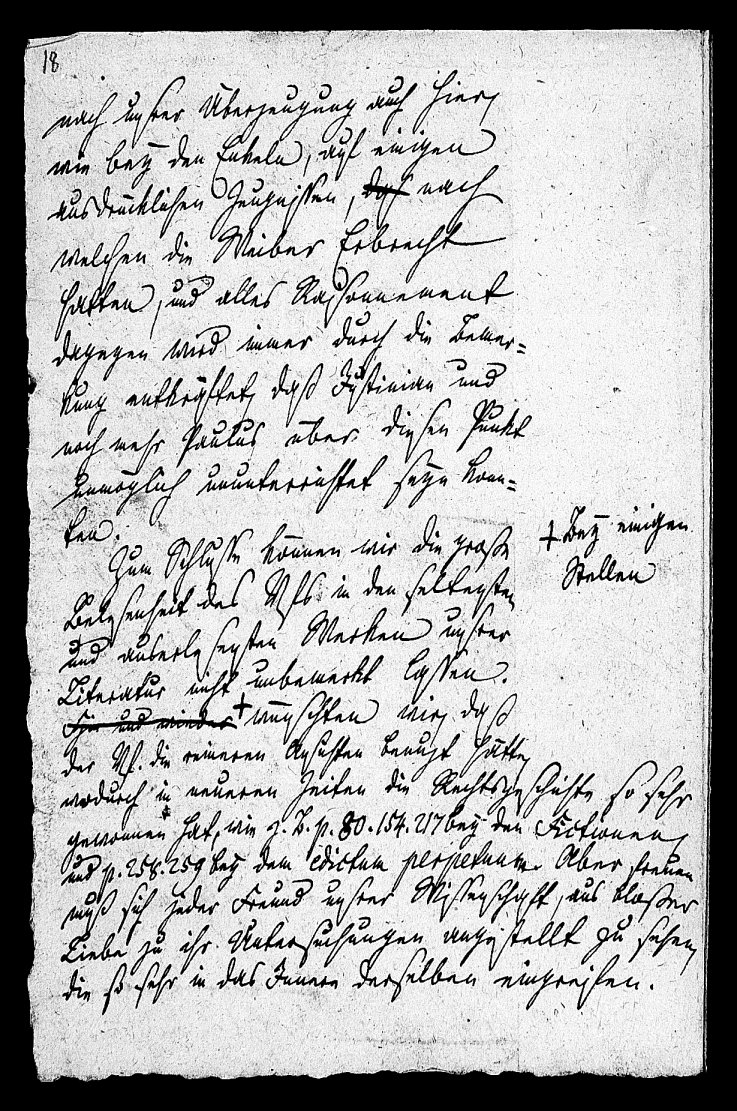 18
nach unsrer Überzeugung auch hier,
wie bey den Enkeln, auf einigen
ausdrücklichen Zeugnissen, daß nach
welchen die Weiber Erbrecht
hatten, und alles Raisonnement
dagegen wird immer durch die Bemer=
kung entkräftet, daß Justinian und
noch mehr Paulus über diesen Punkt
unmöglich ununterrichtet seyn konn=
ten.
Zum Schlusse können wir die große
Belesenheit des Vfs. in den seltensten
und auserlesensten Werken unsrer
Literatur nicht unbemerkt lassen.
Hin und wieder + wünschten wir, daß
+ Bey einigen
Stellen
der Vf. die reineren Ansichten benuzt hätte,
wodurch in neueren Zeiten die Rechtsgeschichte so sehr
gewonnen hat, wie z. B. p. 80. 154. 217 bey den Fictionen,
und p. 258. 259 bey dem edictum perpetuum. Aber freuen
muß sich jeder Freund unsrer Wissenschaft, aus bloßer
Liebe zu ihr Untersuchungen angestellt zu sehen,
die so sehr in das Innere derselben eingreifen.